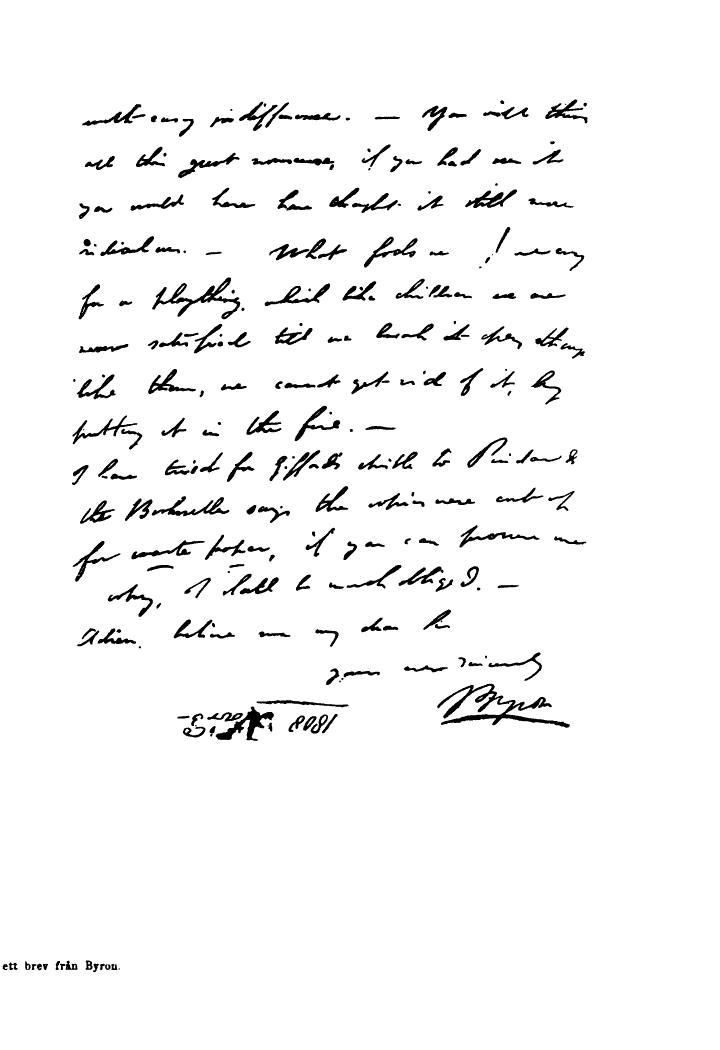 with easy indifference. — You will think
all this great nonsense, if you had seen it
you would have have thought it still more
ridiculous. — What fools we ! we cry
for a plaything, which like children we are
never satisfied till we break it open, though
like them, we cannot get rid of it, by
putting it in the fire. —
I have tried for Gifford's Epistle to Pindar &
the Bookseller says the copies were cut up
for waste paper, if you can procure me
a copy, I shall be much obliged. —
Adieu. believe me my dear Sir
yours ever sincerely
Byron
1808
ett brev från Byron.